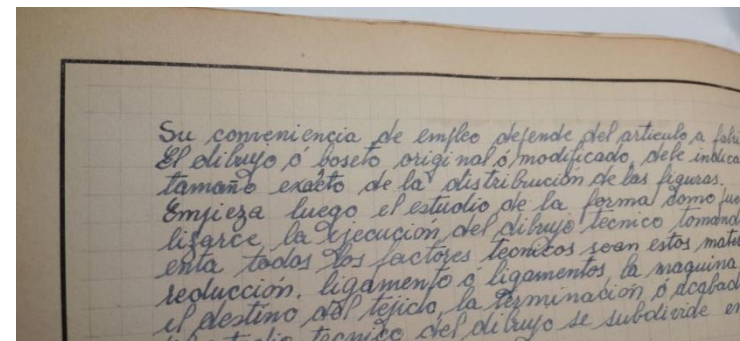 Su conveniencia de empleo depende del articulo a fabri
El dibujo ó boseto original ó modificado, debe indica
tamaño exacto de la distribución de las figuras.
Empieza luego el estudio de la forma como pue
lizarce la ejecucion del dibujo tecnico tomand
enta todos los factores tecnicos sean estos mate
reduccion, ligamento ó ligamentos, la maquina
el destino del tejido, la terminación ó acabad
estudio tecnico del dibujo se subdivide en